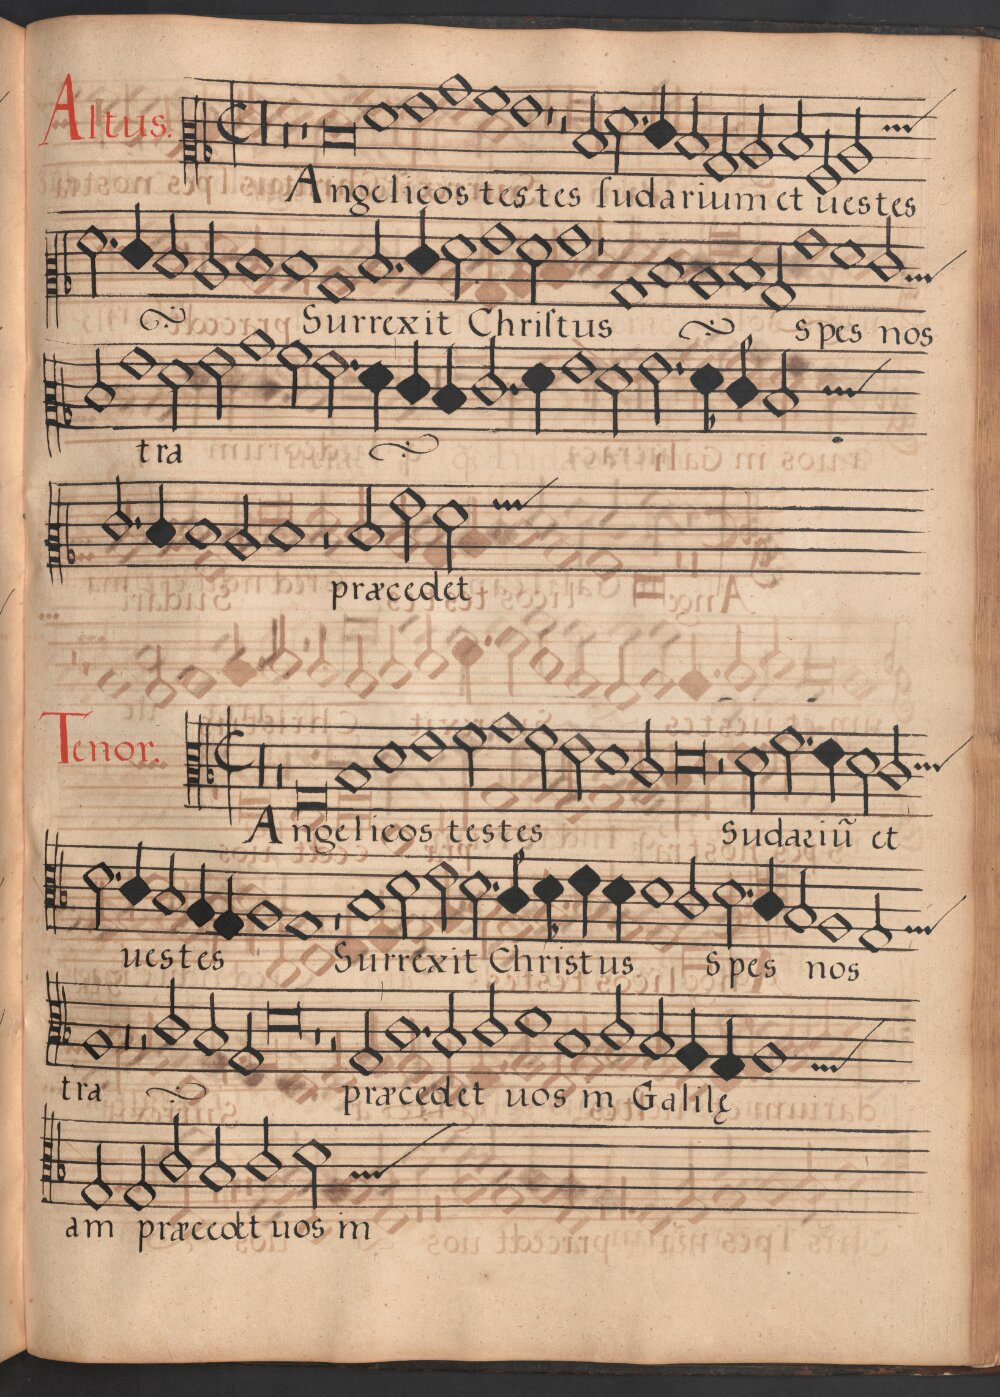 Altus.
Angelicos testes ſudarium et uestes
Surrexit Chriſtus spes nos
tra
præcedet
Tenor.
Angelicos testes Sudariũ et
uestes Surrexit Christus spes nos
tra præcedet uos in Galilę
am præcedet uos in